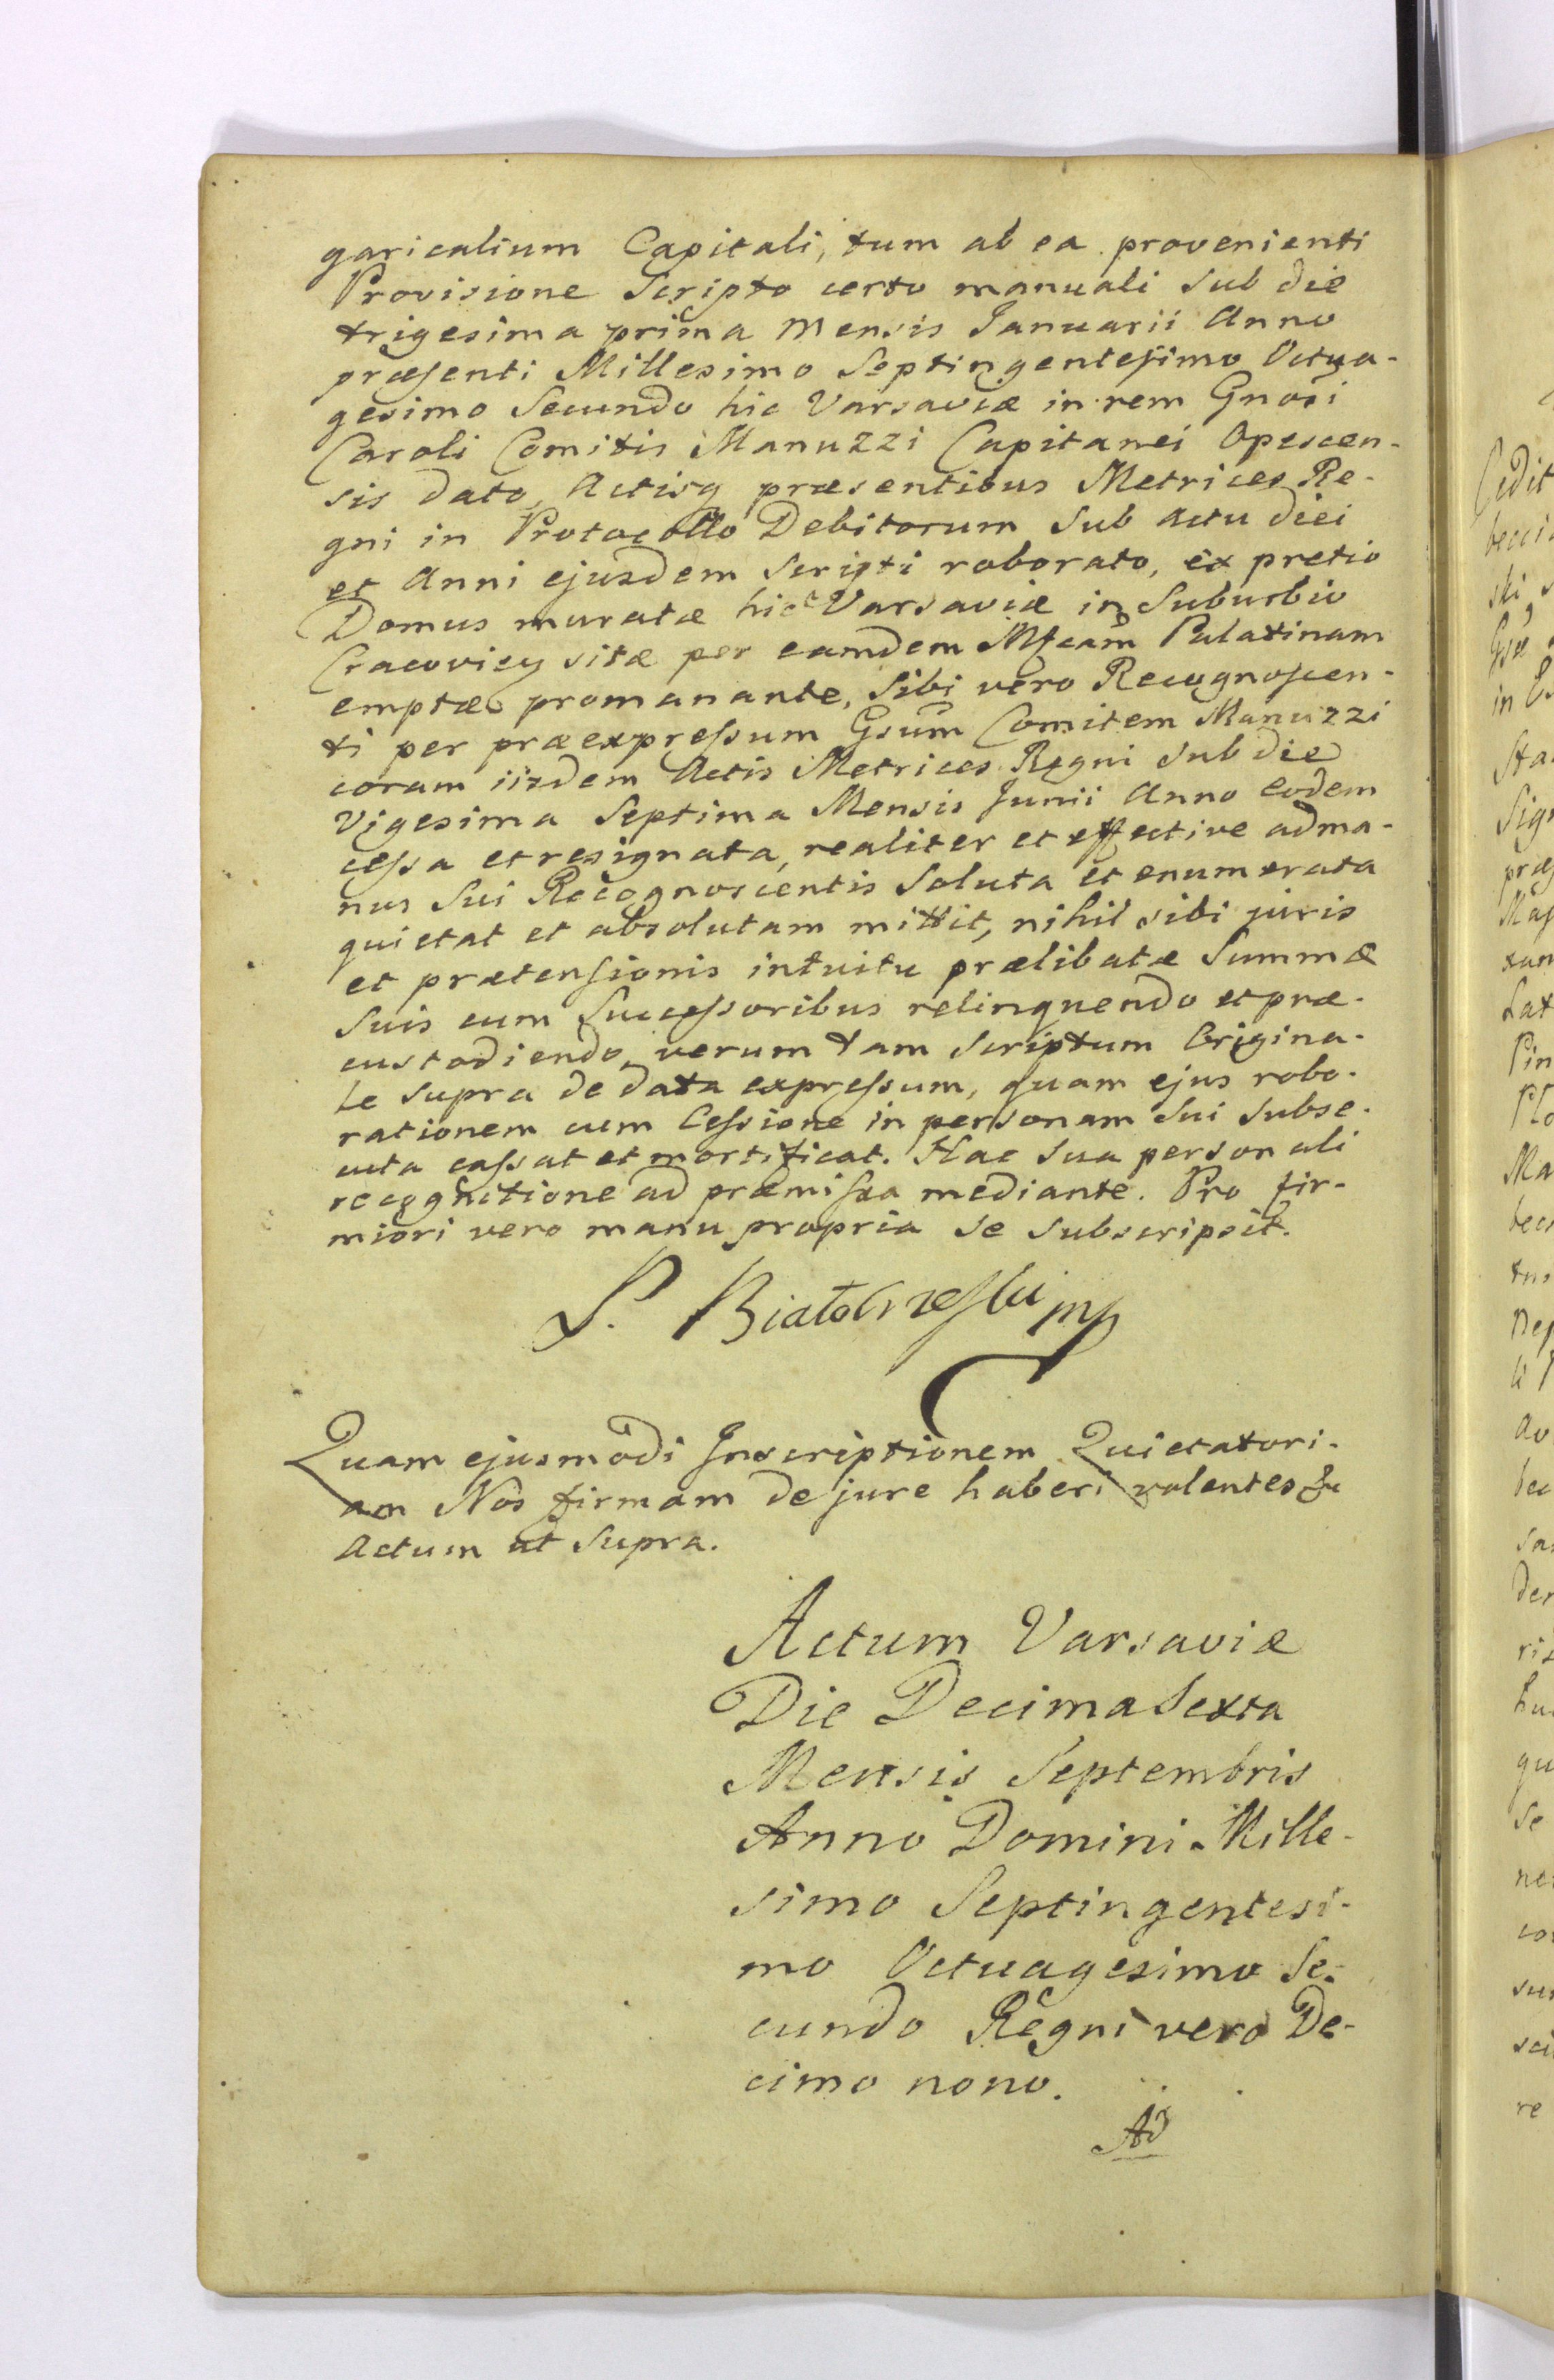 garicalium Capitali, tum ab ea provenienti
Provisione Scripto certo manuali sub die
trigesima prima Mensis Januarii Anno
præsenti Millesimo Septingentesimo Octua-
gesimo Secundo hic Varsaviæ in rem Gnosi
Caroli Comitis Manuzzi Capitanei Opescen-
sis dato, Actisq præsentibus Metrices Re-
gni in Protocollo Debitorum sub actu diei
et Anni ejusdem Scripti roborato, ex pretio
Domus muratæ hic Varsaviæ in Suburbio
Cracoviey sitæ per eamdem Mfcam Palatinam
emptæ promanante, sibi vero Recognoscen-
ti per præexpressum Gsum Comitem Manuzzi
coram iisdem Actis Metrices Regni sub die
Vigesima Septima Mensis Junii Anno eodem
cessa et resignata, realiter et effective ad ma-
nus sui Recognoscentis Soluta et enumerata
quietat et absolutam mittit, nihil sibi juris
et prætensionis intuitu prælibatæ Summæ
suis cum Successoribus relinquendo et præ-
custodiendo, verum tam scriptum Origina-
le supra de data expressum, quam ejus robo-
rationem cum Cessione in personam sui subse-
cuta cassat et mortificat. Hac sua personali
recognitione ad præmissa mediante. Pro fir-
miori vero manu propria se subscripsit.
S. Białobrzeski mp
Quam ejusmodi Inscriptionem Quietatori-
am Nos firmam de jure haberi volentes &c
Actum ut supra.
Actum Varsaviæ
Die Decima Sexta
Mensis Septembris
Anno Domini Mille-
simo Septingentesi-
mo Octuagesimo Se-
cundo Regni vero De-
cimo nono.
Ad